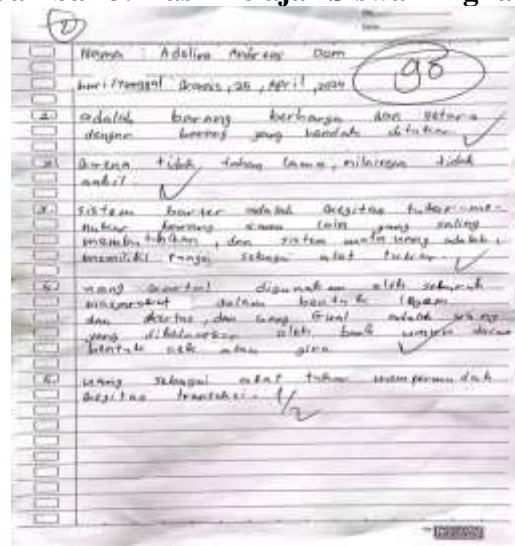 Nama : Adelina Andreas Dom
Hari/Tanggal : Kamis, 25, April, 2024
98
adalah barang berharga dan setara
dengan barang yang hendak ditukar
karena tidak tahan lama, nilainya tidak
sistem barter adalah kegiatan tukar-me-
nukar barang sama lain yang saling
membutuhkan, dan sistem mata uang adalah,
memiliki fungsi sebagai alat tukar.
uang kartal digunakan oleh seluruh
masyarakat dalam bentuk logam
dan kertas, dan uang Giral adalah uang
yang dikeluarkan oleh bank umum dalam
bentuk cek atau giro.
uang sebagai alat tukar mempermudah
kegiatan transaksi. 1/2